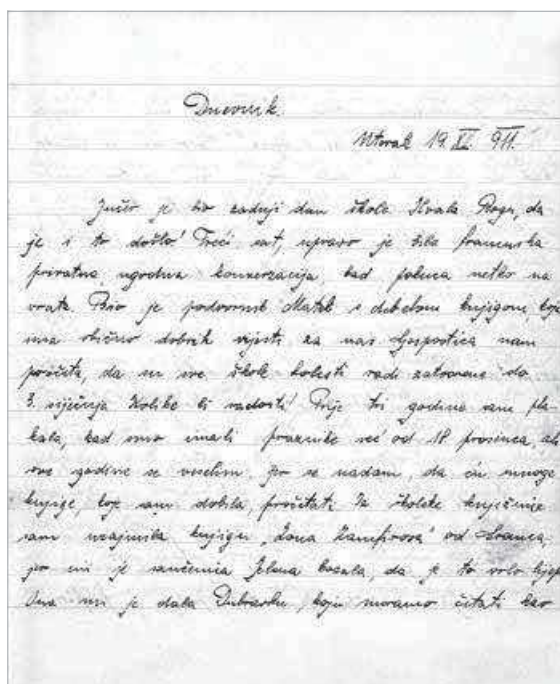 Dnevnik.
Utorak 19. XII. 911.
Jučer je bio zadnji dan škole. Hvala Bogu, da
je i to došlo! Treći sat, upravo je bila francuska
privatna ugodna konverzacija, kad pokuca netko na
vrata. Bio je podvornik Matek s debelom knjigom, koja
ima obično dobrih vijesti za nas. Gospođica nam
pročita, da su sve škole bolesti radi zatvorene do
3. siječnja. Kolike li radosti! Prije tri godine sam pla
kala, kad smo imali praznike već od 18. prosinca, ali
ove godine se veselim, jer se nadam, da ću mnoge
knjige, koje sam dobila, pročitati. Iz školske knjižnice
sam uzajmila knjigu „Zona Zamfirova" od Sremca,
jer mi je Jelena kazala, da je to vrlo lijepo
Ona mi je dala Dubravku, koju moramo čitati kao